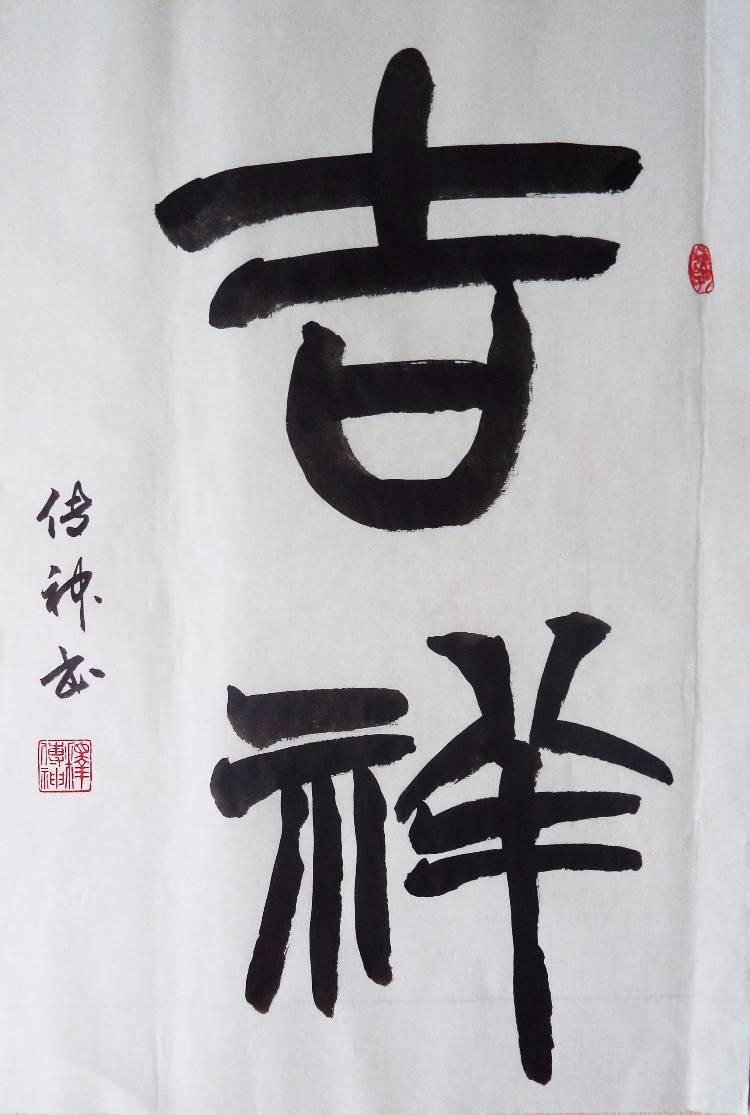 吉祥
传神书
澤傳神